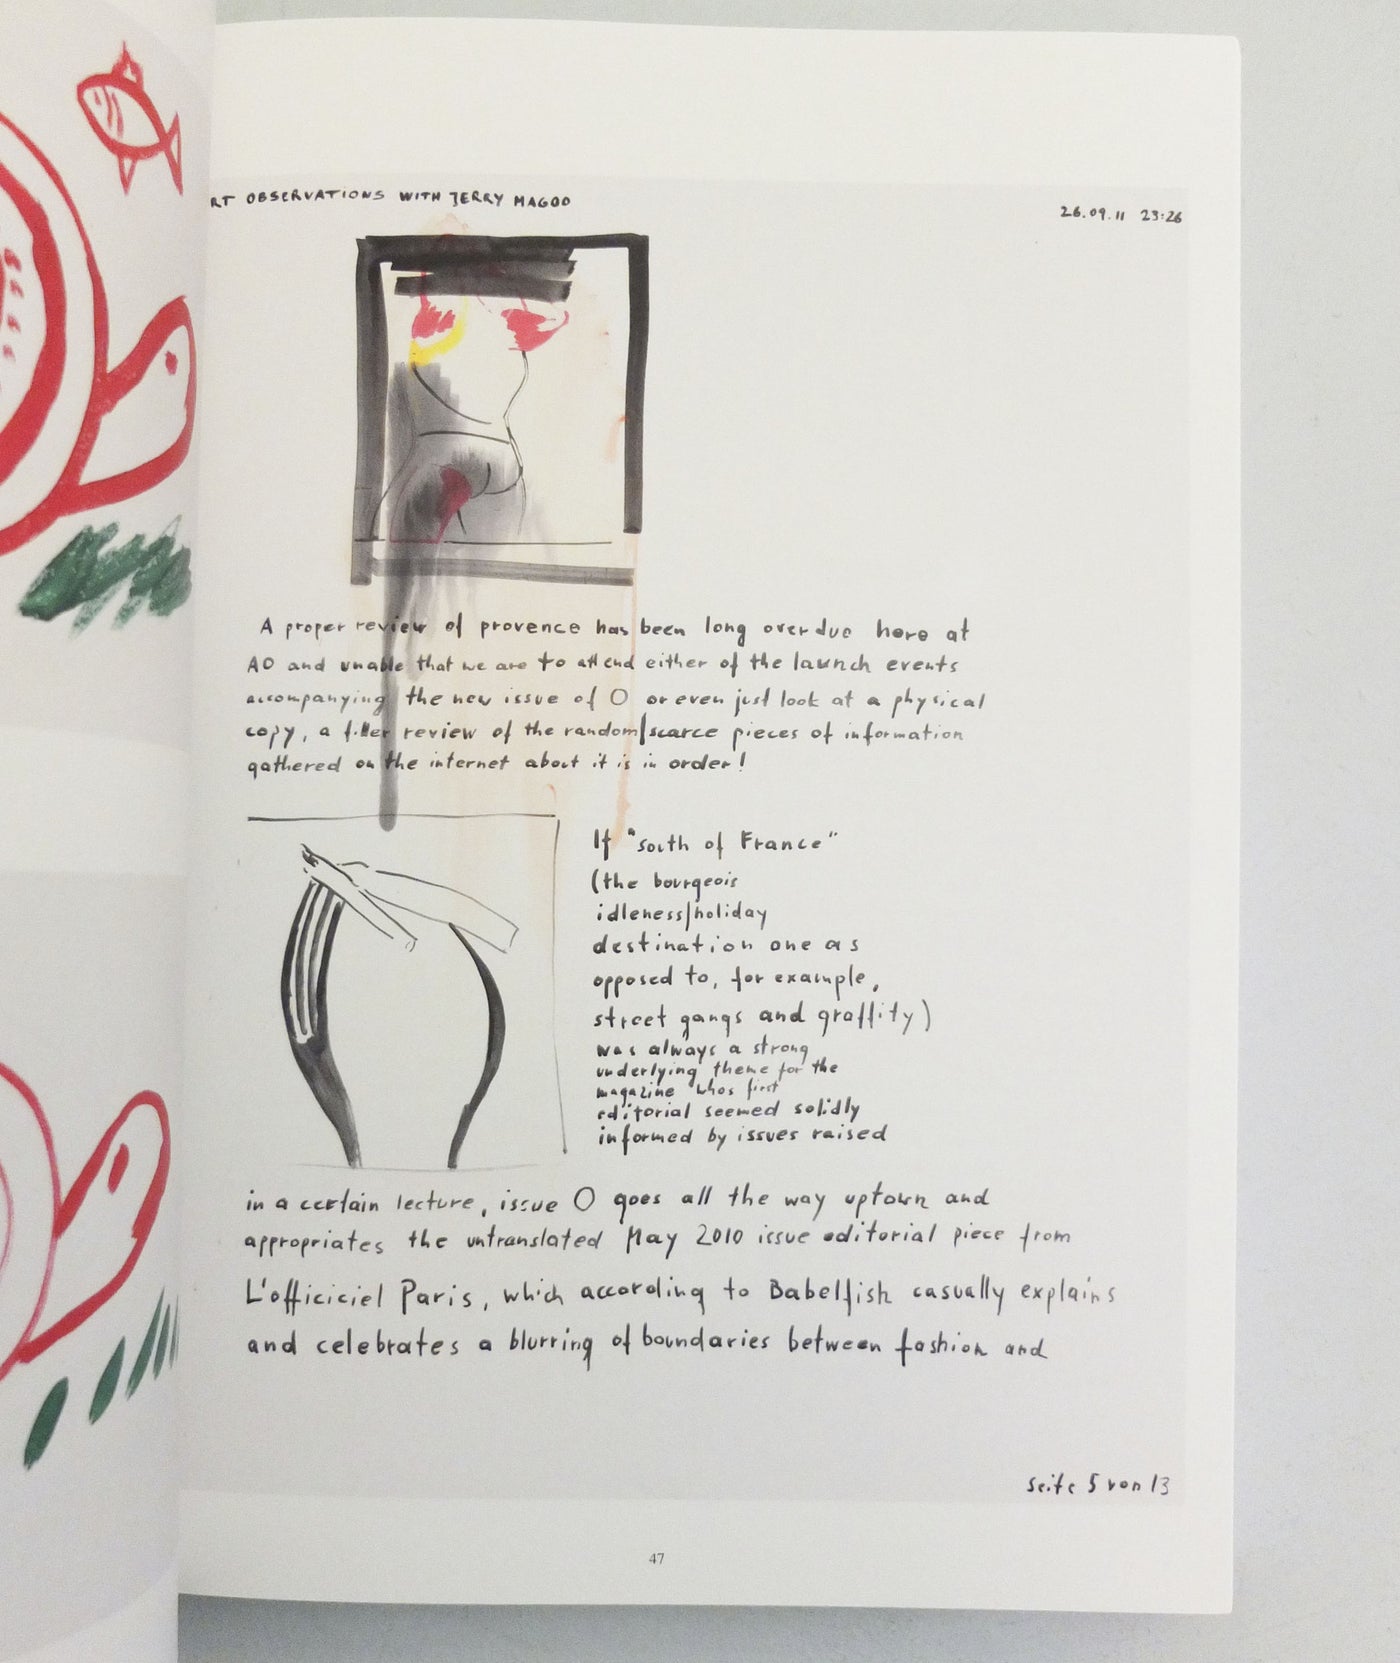 RT OBSERVATIONS WITH JERRY MAGOO
26.09.11 23:26
A proper review of provence has been long overdue here at
AO and unable that we are to attend either of the launch events
accompanying the new issue of O or even just look at a physical
copy, a filler review of the random/scarce pieces of information
gathered on the internet about it is in order!
If "south of France"
(the bourgeois
idleness/holiday
destination one as
opposed to, for example,
street gangs and graffity)
was always a strong
underlying theme for the
magazine whos first
editorial seemed solidly
informed by issues raised
in a certain lecture, issue O goes all the way uptown and
appropriates the untranslated May 2010 issue editorial piece from
L'officiciel Paris, which according to Babelfish casually explains
and celebrates a blurring of boundaries between fashion and
Seite 5 von 13
47